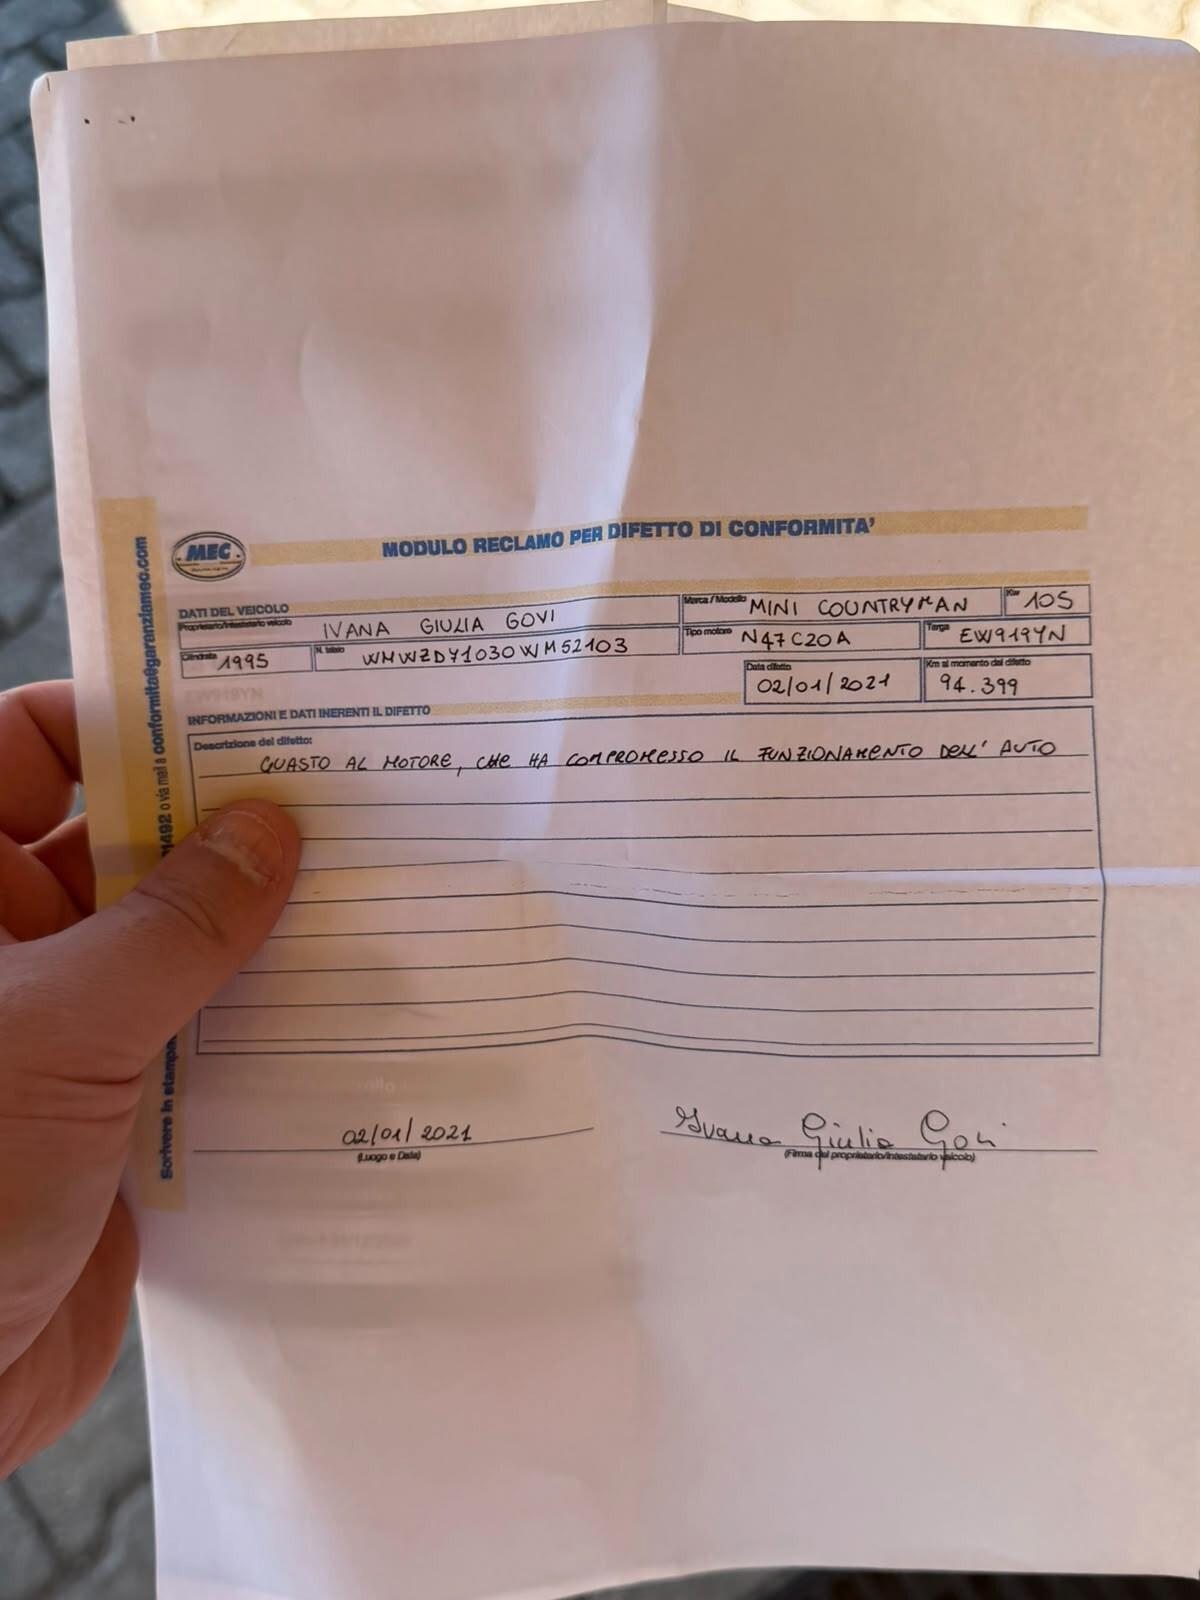 MEC
MODULO RECLAMO PER DIFETTO DI CONFORMITA'
DATI DEL VEICOLO
Proprietario/intestatario veicolo IVANA GIULIA GOVI
Marca / Modello MINI COUNTRYMAN
Kw 105
Cilindrata 1995
N. telaio WMWZDY1030WM52103
Tipo motore N47C20A
Targa EW919YN
Data difetto 02/01/2021
Km al momento del difetto 94.399
INFORMAZIONI E DATI INERENTI IL DIFETTO
Descrizione del difetto:
GUASTO AL MOTORE, CHE HA COMPROMESSO IL FUNZIONAMENTO DELL' AUTO
02/01/2021
(Luogo e Data)
Ivana Giulia Govi
(Firma del proprietario/intestatario veicolo)
Scrivere in stampa
1492 o via mail a conformita@garanziamec.com